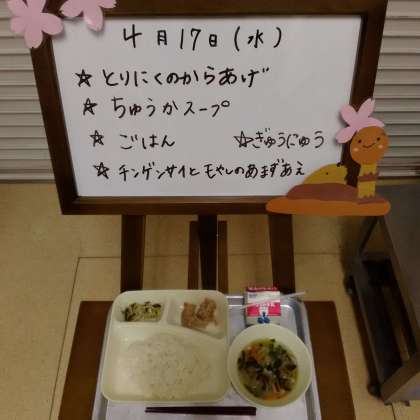 4月17日(水)
☆とりにくのからあげ
☆ちゅうかスープ
☆ごはん ☆ぎゅうにゅう
☆チンゲンサイともやしのあまずあえ